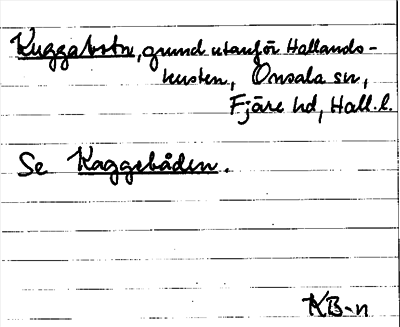 Kuggabotn, grund utanför Hallands-
kusten, Onsala sn,
Fjäre hd, Hall. l.
Se Kaggebåden.
KB-n